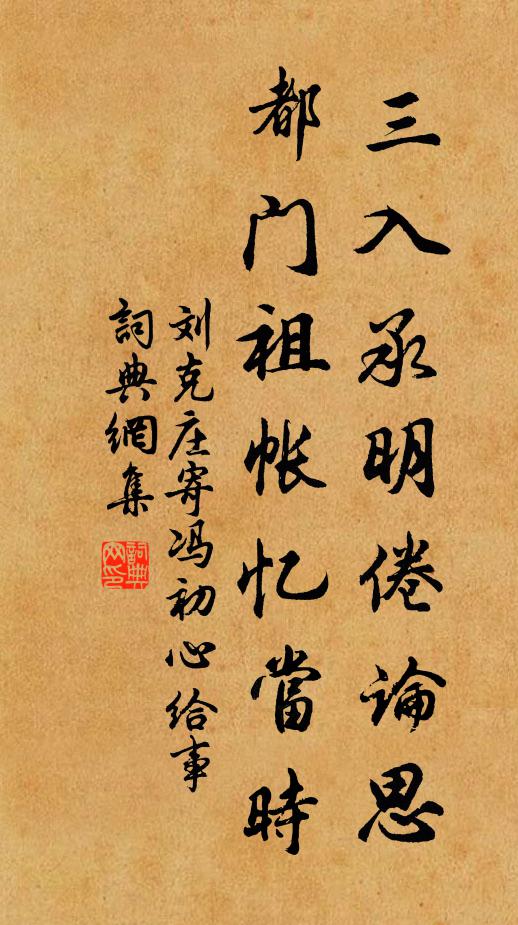 三入承明倦論思
都门祖帐忆當時
刘克庄寄冯初心给事
詞典網集
詞典
网印